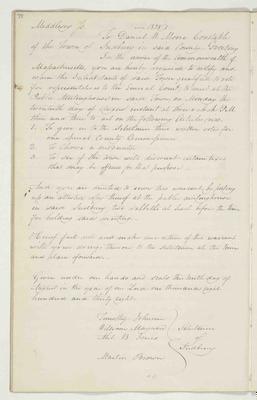 Middlesex Ss.
To Daniel W. Moore Constable
of the Town of Sudbury in said County Greeting
In the name of the Commonwealth of
Massachusetts, you are hereby required to notify and
warn the Inhabitants of said Town qualified to vote
for representatives to the General Court to meet at the
Public Meetinghouse in said Town on Monday the
day of August instant at three o'clock P.M
then and there to act on the following Articles
1. To give in to the Selectmen their written votes for
one special County Commissioner
2. To choose a
3. To see if the town will discount certain taxes
that may be offered for that purpose
And you are directed to serve this warrant, by posting
up an attested copy thereof at the public meetinghouse
in said Sudbury two sabbaths at least before the time
for holding said meeting.
Hereof fail not and make due return of this warrant
with your doings thereon to the selectmen at the time
and place aforesaid.
Given under our hands and seals the tenth day of
August in the year of our Lord one thousand eight
hundred and thirty eight.
Timothy
William Maynard Selectmen
B. Jones of
Martin Brown Sudbury